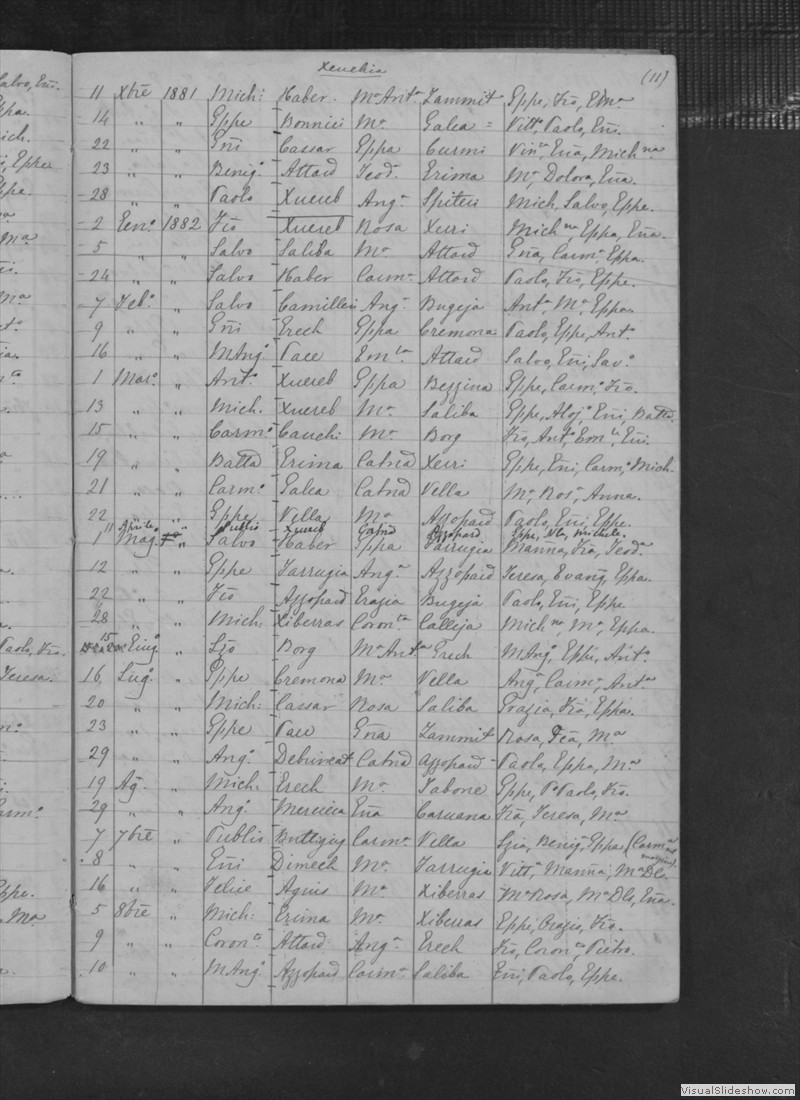 Xeuchia (11)
11 Xbre 1881 Mich: Haber Ma Anta Zammit Gppe, Fço, Emla
14 " " Gppe Bonnici Ma Galea = Vittа, Paolo, Eñi.
22 " " Gñi Cassar Gppa Curmi Vin, Eña, Mich na
23 " " Benigo Attard Teoda Erima Ma, Dolora, Eña.
28 " " Paolo Xuereb Anga Spiteri Mich, Salvo, Gppe.
2 Eeno 1882 Fço Xuereb Rosa Xerri Mich na Gppa, Eña.
5 " " Salvo Saliba Ma Attard Gña, Carma, Gppa.
24 " " Salvo Haber Carma Attard Paolo, Fço, Gppe.
7 Febo " Salvo Camilleri Anga Bugeja Anta, Ma, Gppa.
9 " " Gñi Erech Gppa Cremona Paolo, Gppe, Anto
16 " " MAngo Pace Emla Attard Salvo, Eñi, Savo
1 Marо " Anto Xuereb Gppa Bezzina Gppe, Carmo, Fço.
13 " " Mich. Xuereb Ma Saliba Gppe, Aloj, Eñi, Batta.
15 " " Carmo Cauchi Ma Borg Fço, Anto, Emle, Eñi.
19 " " Batta Erima Catna Xerri Gppe, Eñi, Carmo, Mich.
21 " " Carmo Galea Catna Vella Ma, Rosa, Anna.
22 " " Gppe Vella Ma Azzopard Paolo, Eñi, Gppe.
11 Aprile " Publio Xuereb Catna Azzopard Gppe, Michele.
1 Mago " Salvo Haber Gppa Farrugia Manna, Fça, Teoda
12 " " Gppe Farrugia Anga Azzopard Teresa, Evang, Gppa.
22 " " Fço Azzopard Grazia Bugeja Paolo, Eñi, Gppe
28 " " Mich: Xiberras Coronta Calleja Mich na, Ma, Gppa.
15 Giug. " Lzo Borg Ma Anta Erech MAngo, Gppe, Anto
16 Lugo " Gppe Cremona Ma Vella Anga, Carma, Anta
20 " " Mich: Cassar Rosa Saliba Grazia, Fça, Gppa.
23 " " Gppe Pace Gña Zammit Rosa, Fça, Ma
29 " " Ango Debrincat Catna Azzopard Paola, Gppa, Ma
19 Ag. " Mich. Erech Ma Tabone Gppe, Po Paolo, Fço.
29 " " Ango Mercieca Eña Caruana Fça, Teresa, Ma
7 7bre " Publio Buttigieg Carma Vella Gia, Benigo, Gppa (Carma
8 " " Eñi Dimech Ma Farrugia Vitta, Manna, Ma Dla
16 " " Felice Agius Ma Xiberras Ma Rosa, Ma Dla, Eña.
5 8bre " Mich: Erima Ma Xiberras Gppe, Orazio, Fço.
9 " " Coronto Attard Anga Erech Fço, Coronto, Pietro.
10 " " MAngo Azzopard Carma Saliba Eñi, Paolo, Gppe.
VisualSlideshow.com